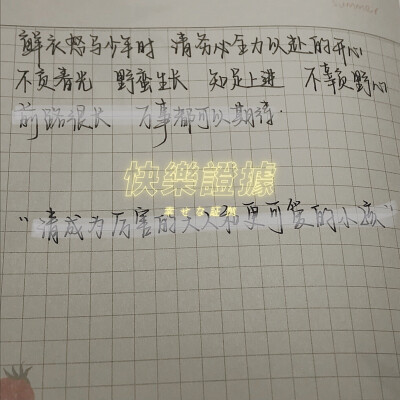 鲜衣怒马少年时 请务必全力以赴的开心
不负春光 野蛮生长 知足上进 不辜负野心
前路很长 万事都可以期待.
快樂證據
“请成为厉害的大人和更可爱的小孩”